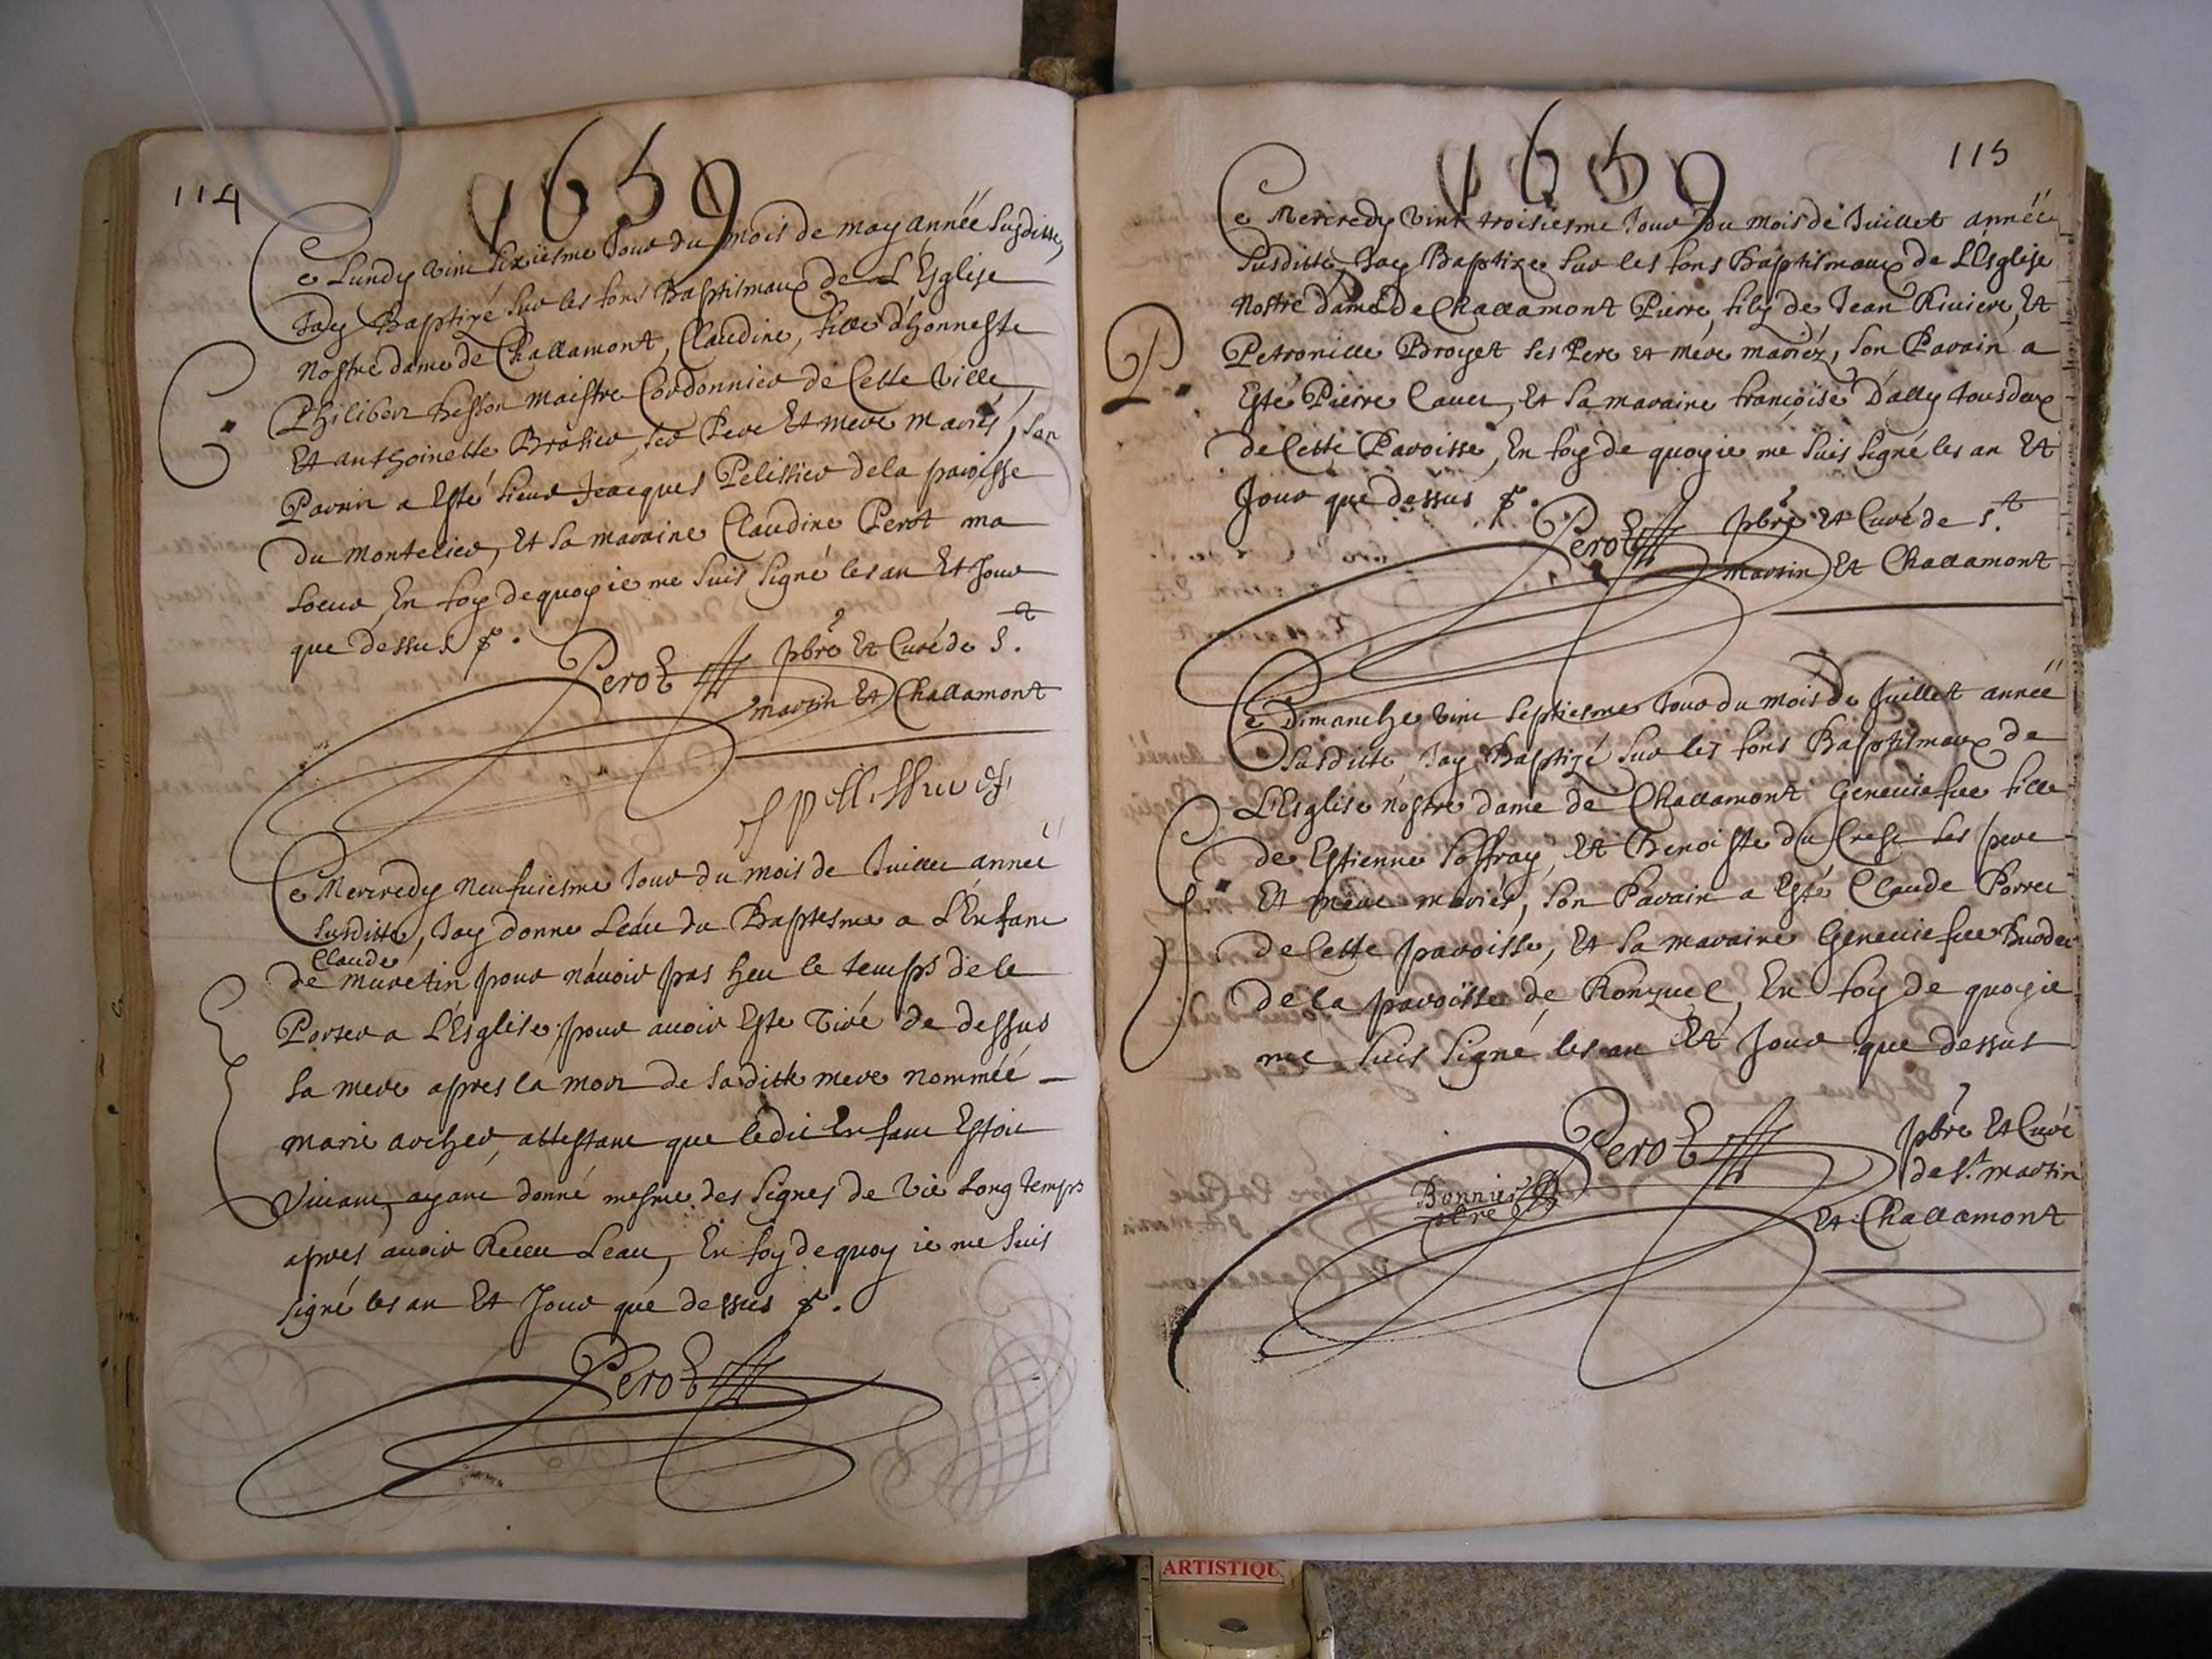 114
1659
Ce Lundy vint sixiesme Jour du mois de may année Susditte,
Jay Baptizé sur les fons Baptismaux de L'Esglise
Nostre dame de Challamont, Claudine, fille d'honneste
Philiber maistre Cordonnier de Cette Ville,
Et anthoinette ses Pere Et mere mariés, son
C.
Parain a Esté sieur Jeacques Pelissier dela paroisse
du Montelier, Et sa maraine Claudine Perot ma
soeur, En foy dequoy ie me suis signé les an Et Jour
que dessus
Perot pbre Et Curé de S.t
martin Et Challamont
Ce Mercredy neufuiesme Jour du mois de Juillet année
susditte, Jay donne Leau du Baptesme a L'Enfant
Claude
de muretin pour n'avoir pas heu le temps de le
Porter a L'Esglise, pour avoir Este Tiré de dessus
sa mere apres la mort de saditte mere nommée
marie archer, attestant que ledit Enfant Estoit
Vivant, ayant donné mesme des signes de vie Long temps
apres avoir Receu Leau, En foy dequoy ie me suis
signé les an Et Jour que dessus
Perot
115
1659
Ce Mercredy vint troisiesme Jour du mois de Juillet année
susditte, Jay Baptize sur les fons Baptismaux de L'Esglise
Nostre dame de Challamont Pierre, fils de Jean Riviere, Et
P.
Petronille Broyet ses Pere et Mere mariéz, son Parain a
Esté Pierre Et sa maraine françoise Dally tous deux
de Cette Paroisse, En foy de quoy ie me suis signé les an Et
Jour que dessus
Perot pbre Et Curé de S.t
martin Et Challamont
Ce Dimanche vint septiesme Jour du mois de Juillet année
susditte, Jay Baptizé sur les fons Baptismaux de
L'Esglise nostre dame de Challamont Geneviefve fille
de Estienne Joffray, Et Benoiste du Crest ses pere
Et mere mariés, son Parain a Esté Claude
de Cette paroisse, Et sa maraine Geneviefve
de la paroisse de Ronzuel, En foy de quoy ie
me suis signé les an Et Jour que dessus
Perot pbre Et Curé
de S.t martin
Et Challamont
Bonnier
pbre
ARTISTIQU